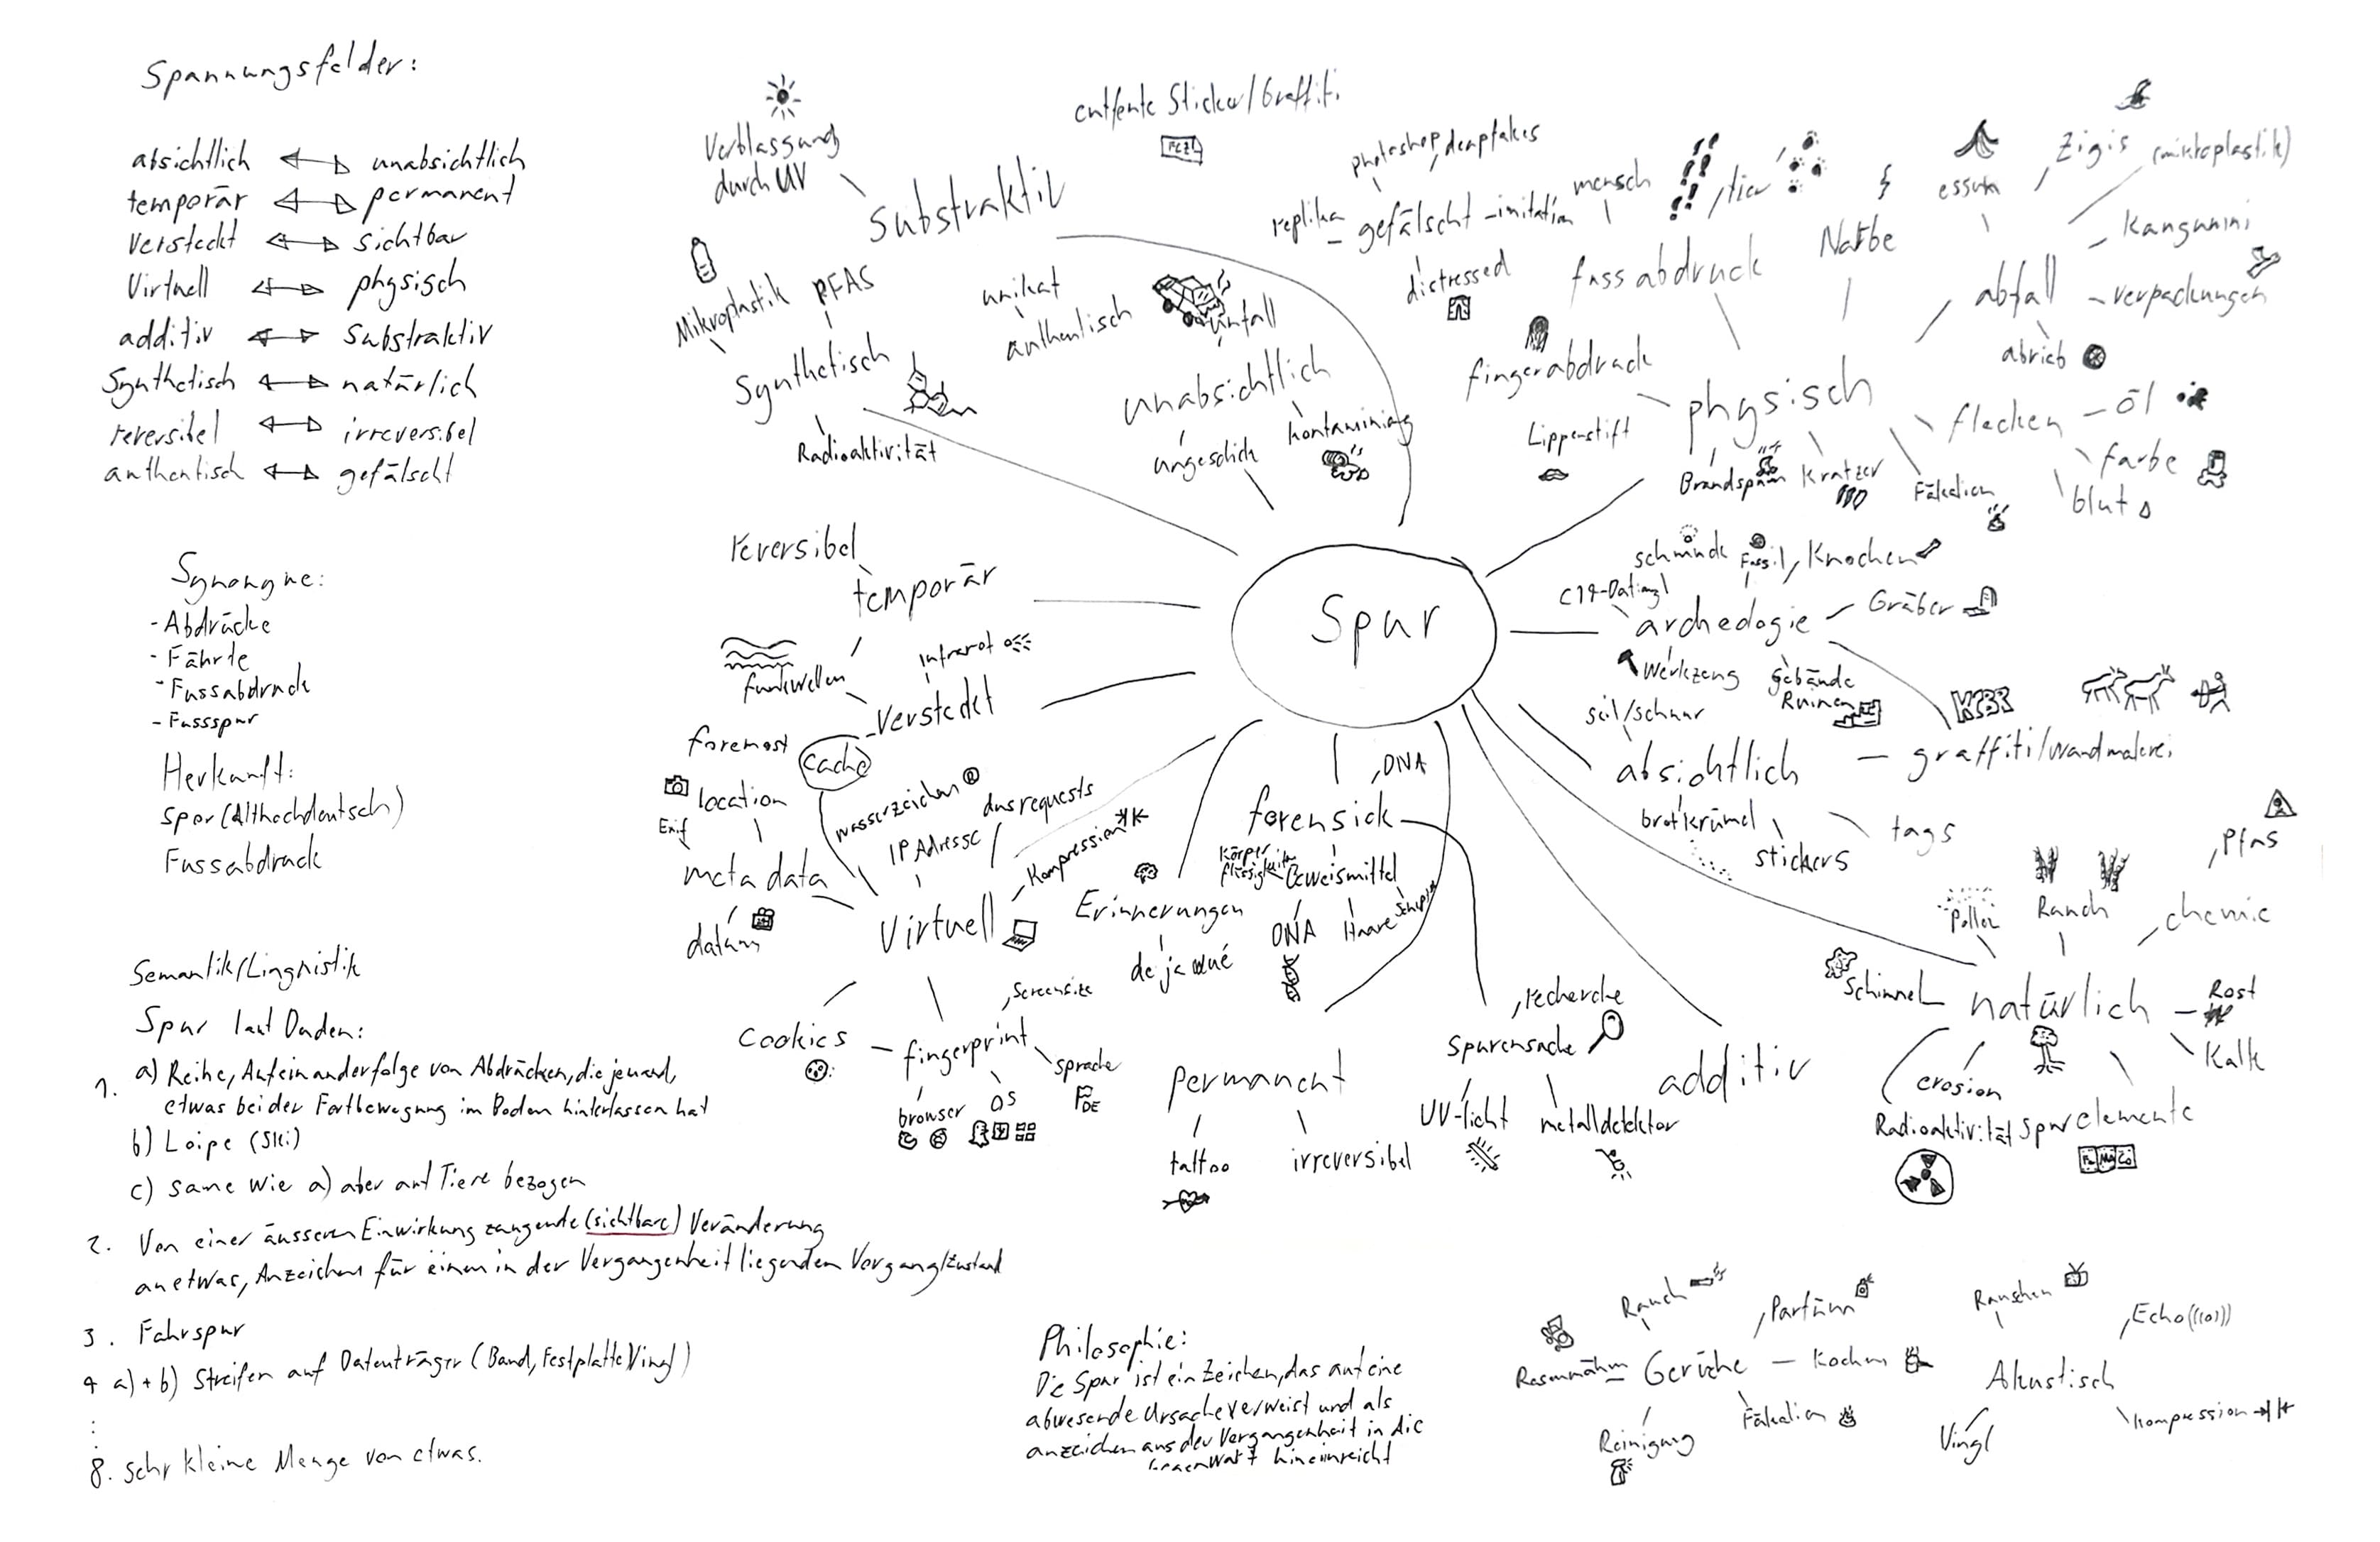 Spannungsfelder:
absichtlich unabsichtlich
temporär permanent
versteckt sichtbar
Virtuell physisch
additiv substraktiv
Synthetisch natürlich
reversibel irreversibel
authentisch gefälscht
Synonyme:
- Abdrücke
- Fährte
- Fussabdruck
- Fussspur
Herkunft:
Spor (Althochdeutsch)
Fussabdruck
Semantik/Linguistik
Spur laut Duden:
1. a) Reihe, Aufeinanderfolge von Abdrücken, die jemand,
etwas bei der Fortbewegung im Boden hinterlassen hat
b) Loipe (Ski)
c) same wie a) aber auf Tiere bezogen
2. Von einer äusseren Einwirkung zeugende (sichtbare) Veränderung
an etwas, Anzeichen für einen in der Vergangenheit liegenden Vorgang/Zustand
3. Fahrspur
4 a) + b) Streifen auf Datenträger (Band, Festplatte, Vinyl)
8. sehr kleine Menge von etwas.
Spur
Substraktiv
Verblassung
durch UV
entfente Sticker/Graffiti
Synthetisch
Mikroplastik
PFAS
Radioaktivität
unikat
authentisch
unabsichtlich
unfall
ungeschick
gefälscht
replika
photoshop, deapfakes
imitation
distressed
physisch
fussabdruck
mensch
/tier
Narbe
abfall
essen
Zigis (mikroplastik)
Kangunini
verpackungen
abrieb
flecken
öl
farbe
blut
Fäkalien
Kratzer
Lippenstift
fingerabdruck
archeologie
schminde
Fossil, Knochen
Gräber
Werkzeug
Gebäude
Ruinen
absichtlich
seil/schnur
graffiti/wandmalerei
tags
stickers
brotkrümel
natürlich
Pollen
Rauch
chemie
Pfas
Rost
Kalk
spurelemente
erosion
Radioaktivität
Schimmel
additiv
forensick
DNA
Körper
flüssigkeiten
Beweismittel
DNA
Haare
spurensuche
recherche
UV-licht
metalldetektor
permanent
tattoo
irreversibel
Erinnerungen
deja vué
Virtuell
wasserzeichen ®
IP Adresse
dns requests
Kompression
meta data
location
Exif
datum
cookies
fingerprint
screensize
sprache
DE
OS
browser
temporär
reversibel
versteckt
infrarot
funkwellen
cache
foremost
Philosophie:
Die Spur ist ein Zeichen, das auf eine
abwesende Ursache verweist und als
anzeichen aus der Vergangenheit in die
hineinreicht
Gerüche
Rauch
Parfüm
Kochen
Fäkalien
Reinigung
Rasenmähen
Akustisch
Rauschen
Echo
kompression
Vinyl